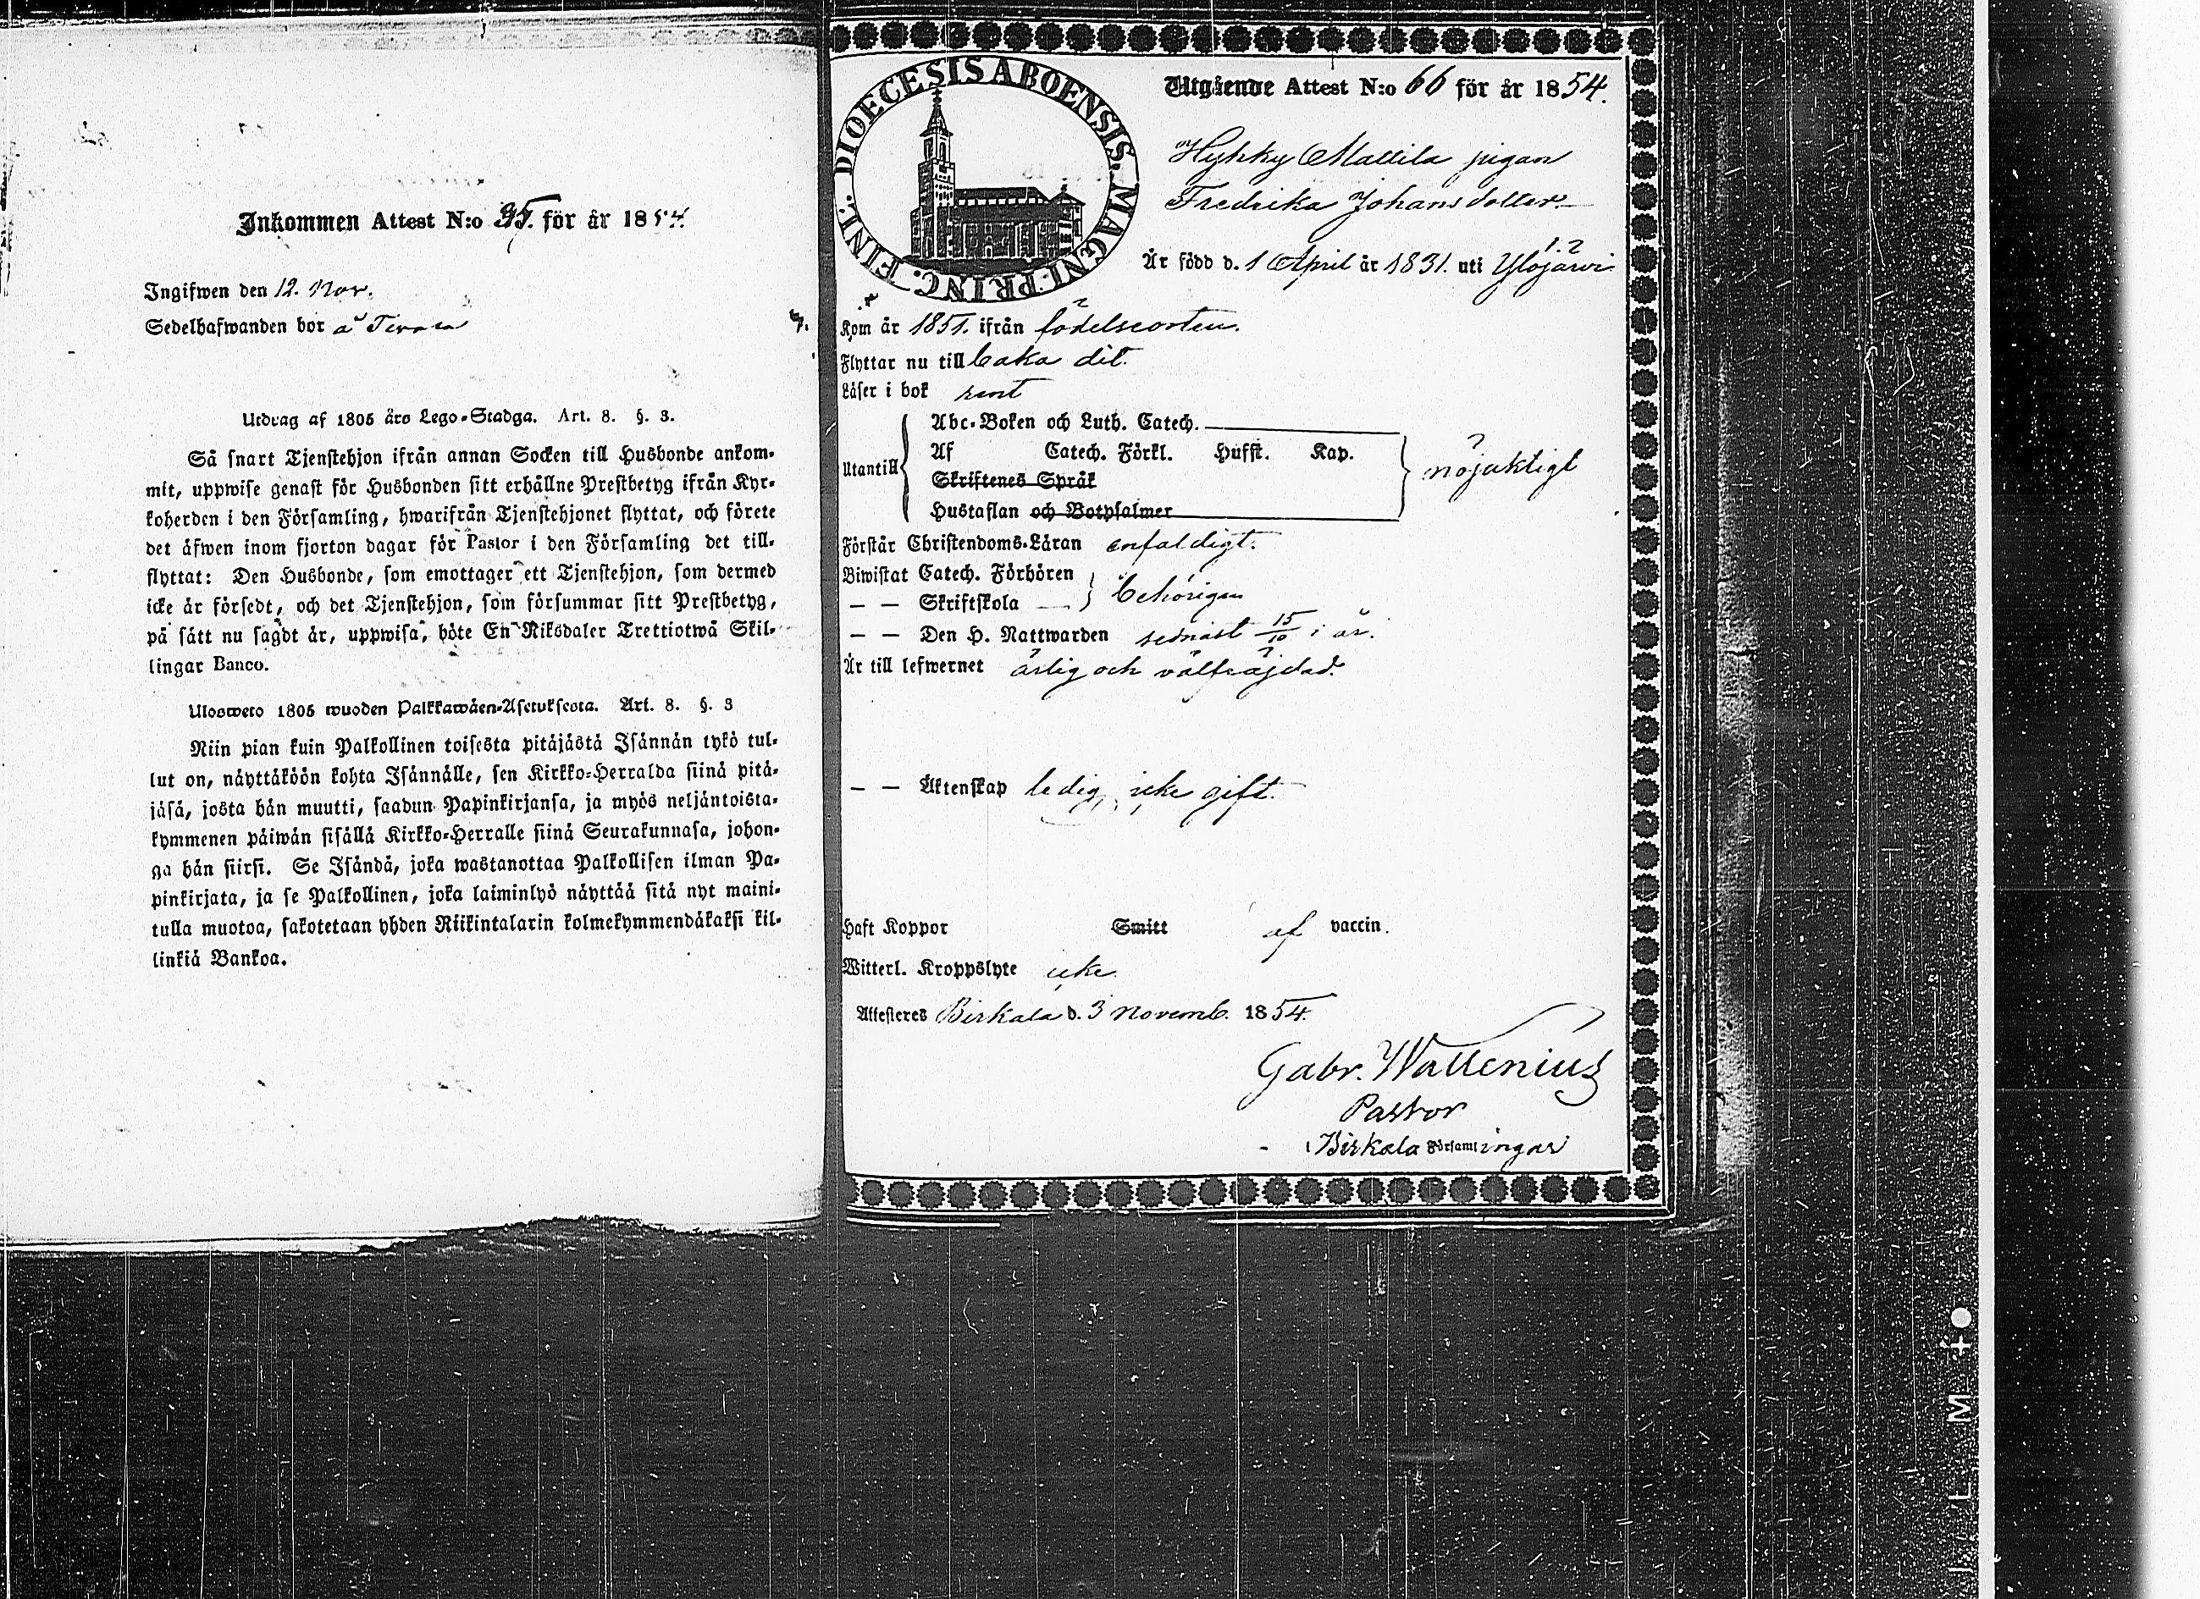 Inkommen Attest N:o 35. för år 1854.
Ingifwen den 12. Nov.
Sedelhafwanden bor å
Utdrag af 1805 års Lego-Stadga. Art. 8. §. 3.
Så snart Tjenstehjon ifrån annan Socken till Husbonde ankom-
mit, uppwise genast för Husbonden sitt erhållne Prestbetyg ifrån Kyr-
koherden i den Församling, hwarifrån Tjenstehjonet flyttat, och förete
det äfwen inom fjorton dagar för Pastor i den Församling det till-
flyttat: Den Husbonde, som emottager ett Tjenstehjon, som dermed
icke är försedt, och det Tjenstehjon, som försummar sitt Prestbetyg,
på sätt nu sagdt är, uppwisa, böte En Riksdaler Trettiotwå Skil-
lingar Banco.
Ulosweto 1805 wuoden Palkkawäen-Asetuksesta. Art. 8. §. 3
Niin pian kuin Palkollinen toisesta pitäjästä Isännän tykö tul-
lut on, näyttäköön kohta Isännälle, sen Kirkko-Herralda siinä pitä-
jäsä, josta hän muutti, saadun Papinkirjansa, ja myös neljäntoista-
kymmenen päiwän sisällä Kirkko-Herralle siinä Seurakunnasa, johon-
ga hän siirsi. Se Isändä, joka wastanottaa Palkollisen ilman Pa-
pinkirjata, ja se Palkollinen, joka laiminlyö näyttää sitä nyt maini-
tulla muotoa, sakotetaan yhden Riikintalarin kolmekymmendäkaksi kil-
linkiä Bankoa.
DIOECESIS ABOENSIS. MAGNI PRINC. FINL.
Utgående Attest N:o 66 för år 1854.
Hyhky Mattila pigan
Fredrika Johansdotter
Är född d. 1 April år 1831. uti Ylöjärvi
Kom år 1851. ifrån födelseorten.
Flyttar nu till baka dit.
Läser i bok rent
Abc-Boken och Luth. Catech.
Utantill Af Catech. Förkl. Hufst. Kap. nöjaktigt
Skriftenes Språk
Hustaflan och Botpsalmer
Förstår Christendoms-Läran enfaldigt.
Biwistat Catech. Förhören
— — Skriftskola behörigen
— — Den H. Nattwarden sednast 15/10 i år.
Är till lefwernet ärlig och välfräjdad.
— — Äktenskap ledig, icke gift.
Haft Koppor Smitt af vaccin.
Witterl. Kroppslyte icke.
Attesteres Birkala d. 3 Novemb. 1854.
Gabr. Wallenius
Pastor
i Birkala Församlingar